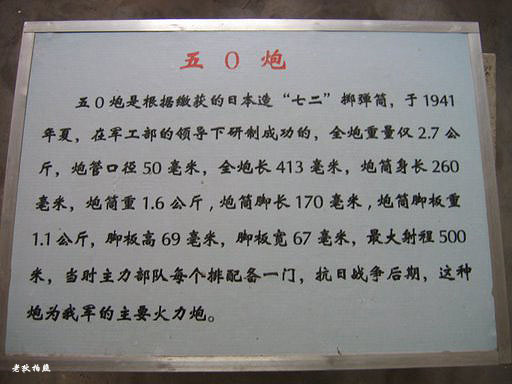 五０炮
五０炮是根据缴获的日本造“七二”掷弹筒，于1941
年夏，在军工部的领导下研制成功的，全炮重量仅2.7公
斤，炮管口径50毫米，全炮长413毫米，炮筒身长260
毫米，炮筒重1.6公斤，炮筒脚长170毫米，炮筒脚板重
1.1公斤，脚板高69毫米，脚板宽67毫米，最大射程500
米，当时主力部队每个排配备一门，抗日战争后期，这种
炮为我军的主要火力炮。
老狄拍摄